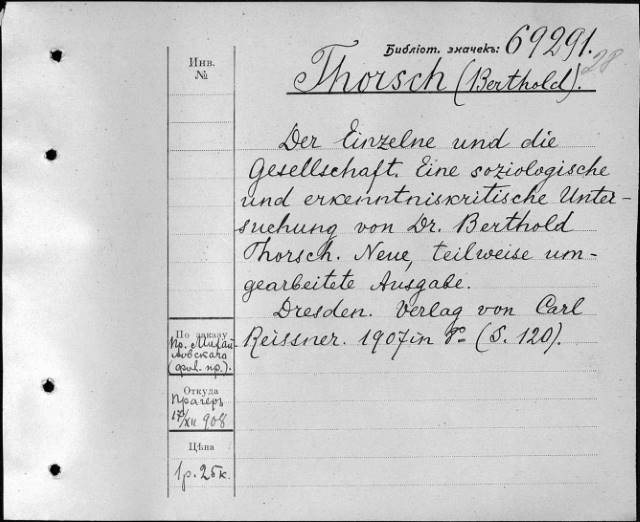 Библіот. значекъ: 69291.
28
Инв.
№
Thorsch (Berthold).
Der Einzelne und die
Gesellschaft. Eine soziologische
und erkenntniskritische Unter-
suchung von Dr. Berthold
Thorsch. Neue, teilweise um-
gearbeitete Ausgabe.
Dresden. Verlag von Carl
Reissner. 1907 in 8º (S. 120).
По заказу
Пр. Михай-
ловскаго
(фил. пр.).
Откуда
Прагеръ
17/XII 908
Цѣна
1 р. 25 к.